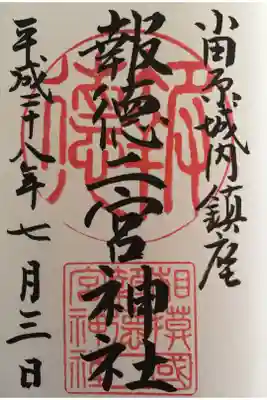 小田原城内鎮座
報徳二宮神社
平成二十八年七月三日
相模國
報徳二
宮神社